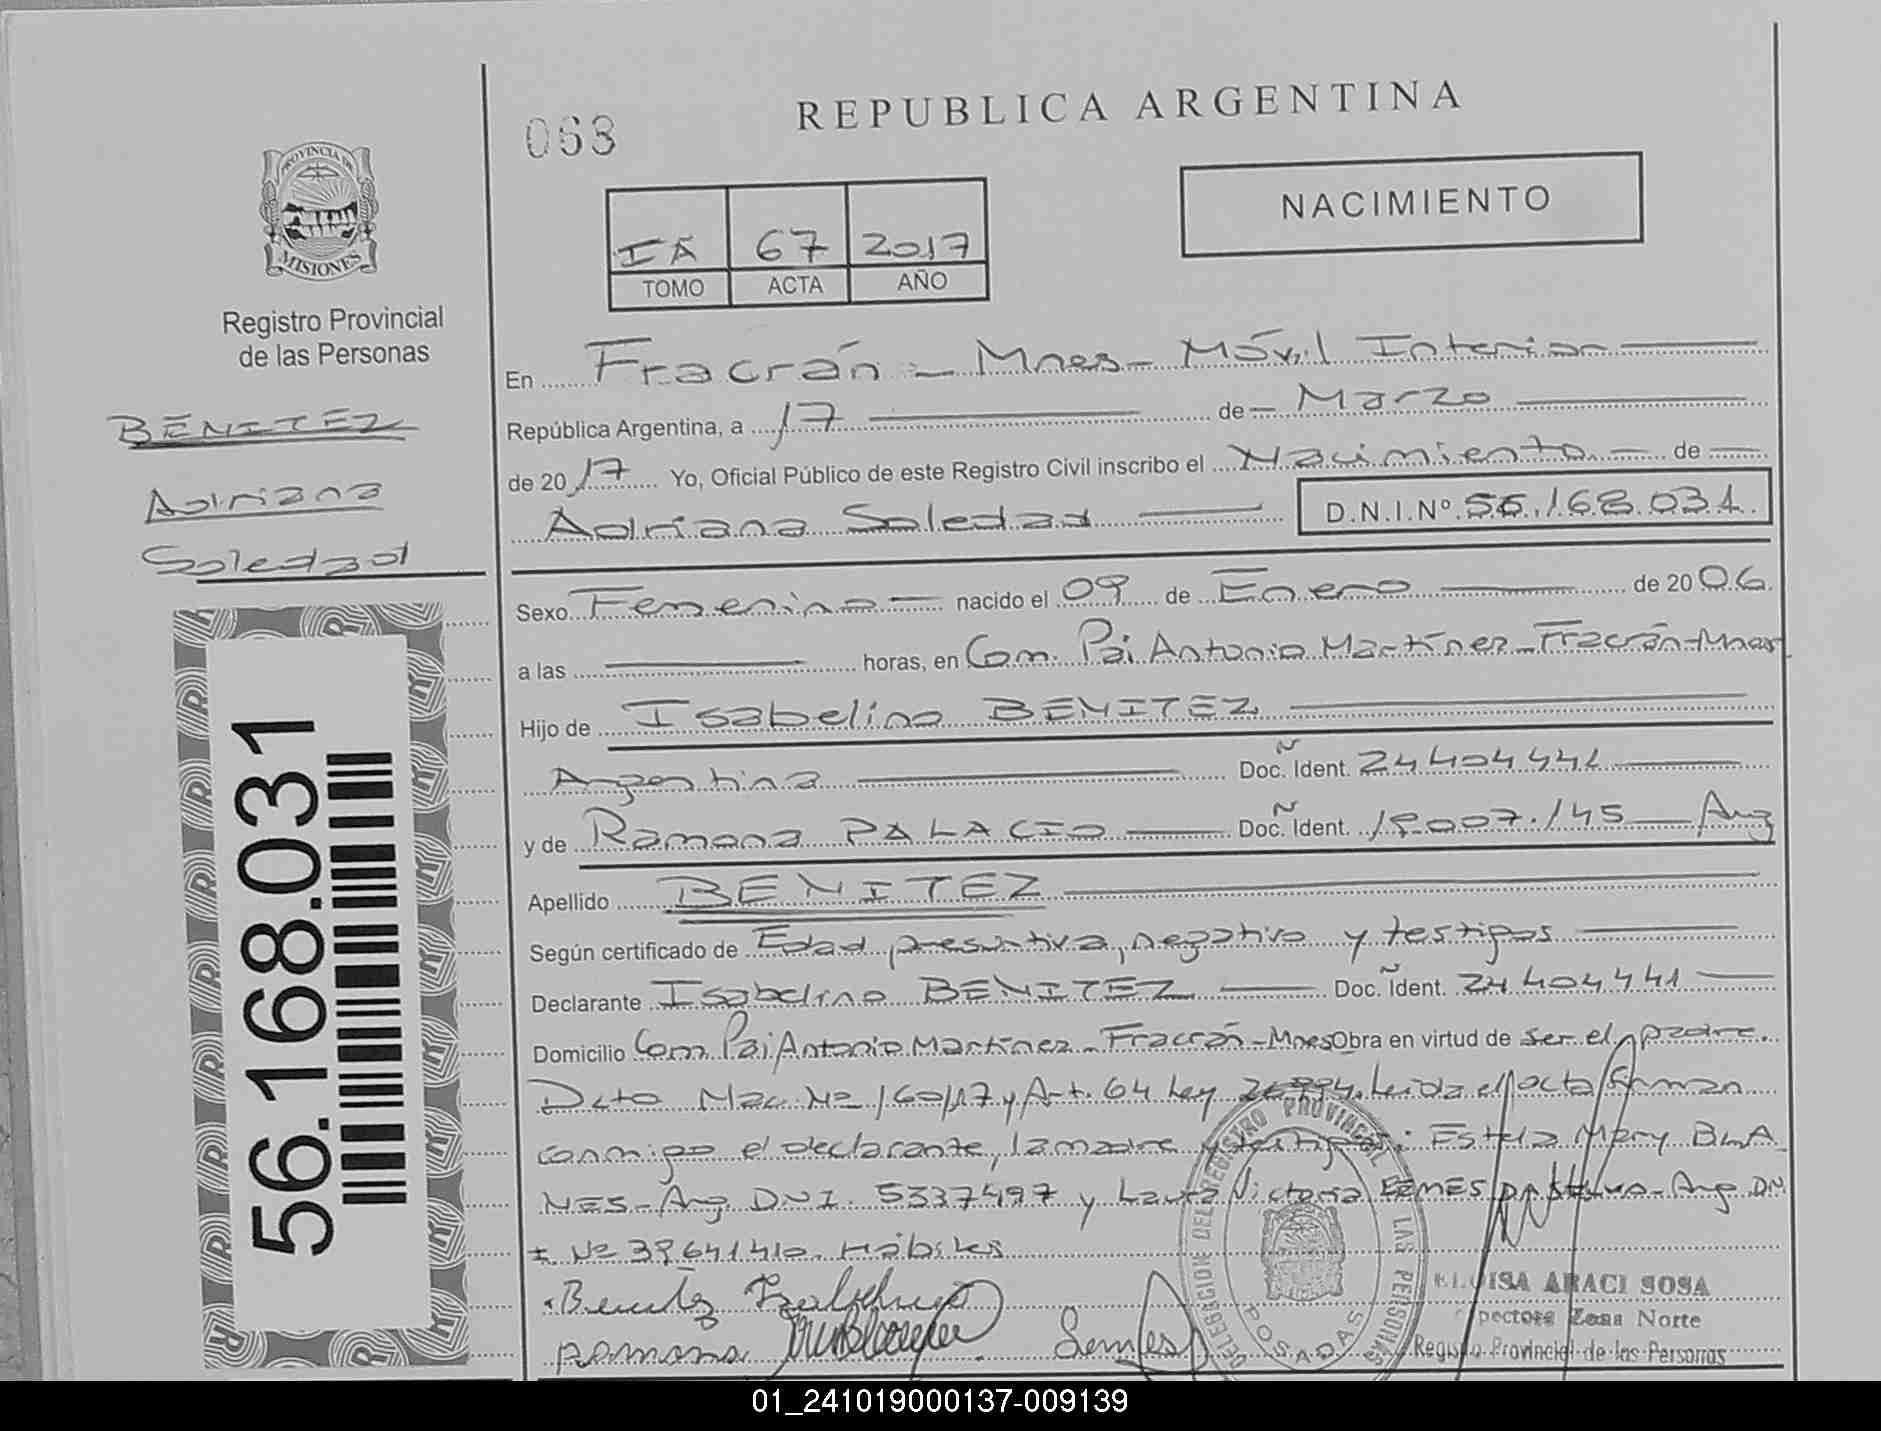 063
REPUBLICA ARGENTINA
NACIMIENTO
PROVINCIA DE
MISIONES
Registro Provincial
de las Personas
BENITEZ
Adriana
Soledad
56.168.031
IA 67 2017
TOMO ACTA AÑO
En Fracrán - Mnes - Móvil Interior
República Argentina, a 17 de Marzo
de 2017 Yo, Oficial Público de este Registro Civil inscribo el Nacimiento de
Adriana Soledad D.N.I.Nº 56.168.031
Sexo Femenino nacido el 09 de Enero de 2006
a las horas, en Com. Pai Antonio Martínez - Fracrán - Mnes
Hijo de Isabelino BENITEZ
Argentina Doc. Ident. 24404441
y de Ramona PALACIO Doc. Ident. 19.007.145 Arg
Apellido BENITEZ
Según certificado de Edad presuntiva, negativo y testigos
Declarante Isabelino BENITEZ Doc. Ident. 24404441
Domicilio Com Pai Antonio Martínez - Fracrán - Mnes Obra en virtud de ser el padre.
Dcto Nac. Nº 160/17 y Art. 64 Ley 26994. Leida el acta firman
conmigo el declarante, la madre y testigos: Estela Mary BLA
NES - Arg. DNI. 5337497 y Laura Victoria Arg. DN
I Nº 39641410. Hábiles
Benitez
Ramona
DELEGACION DEL REGISTRO PROVINCIAL DE LAS PERSONAS
POSADAS
ELOISA ARACI SOSA
Zona Norte
Registro Provincial de las Personas
01_241019000137-009139